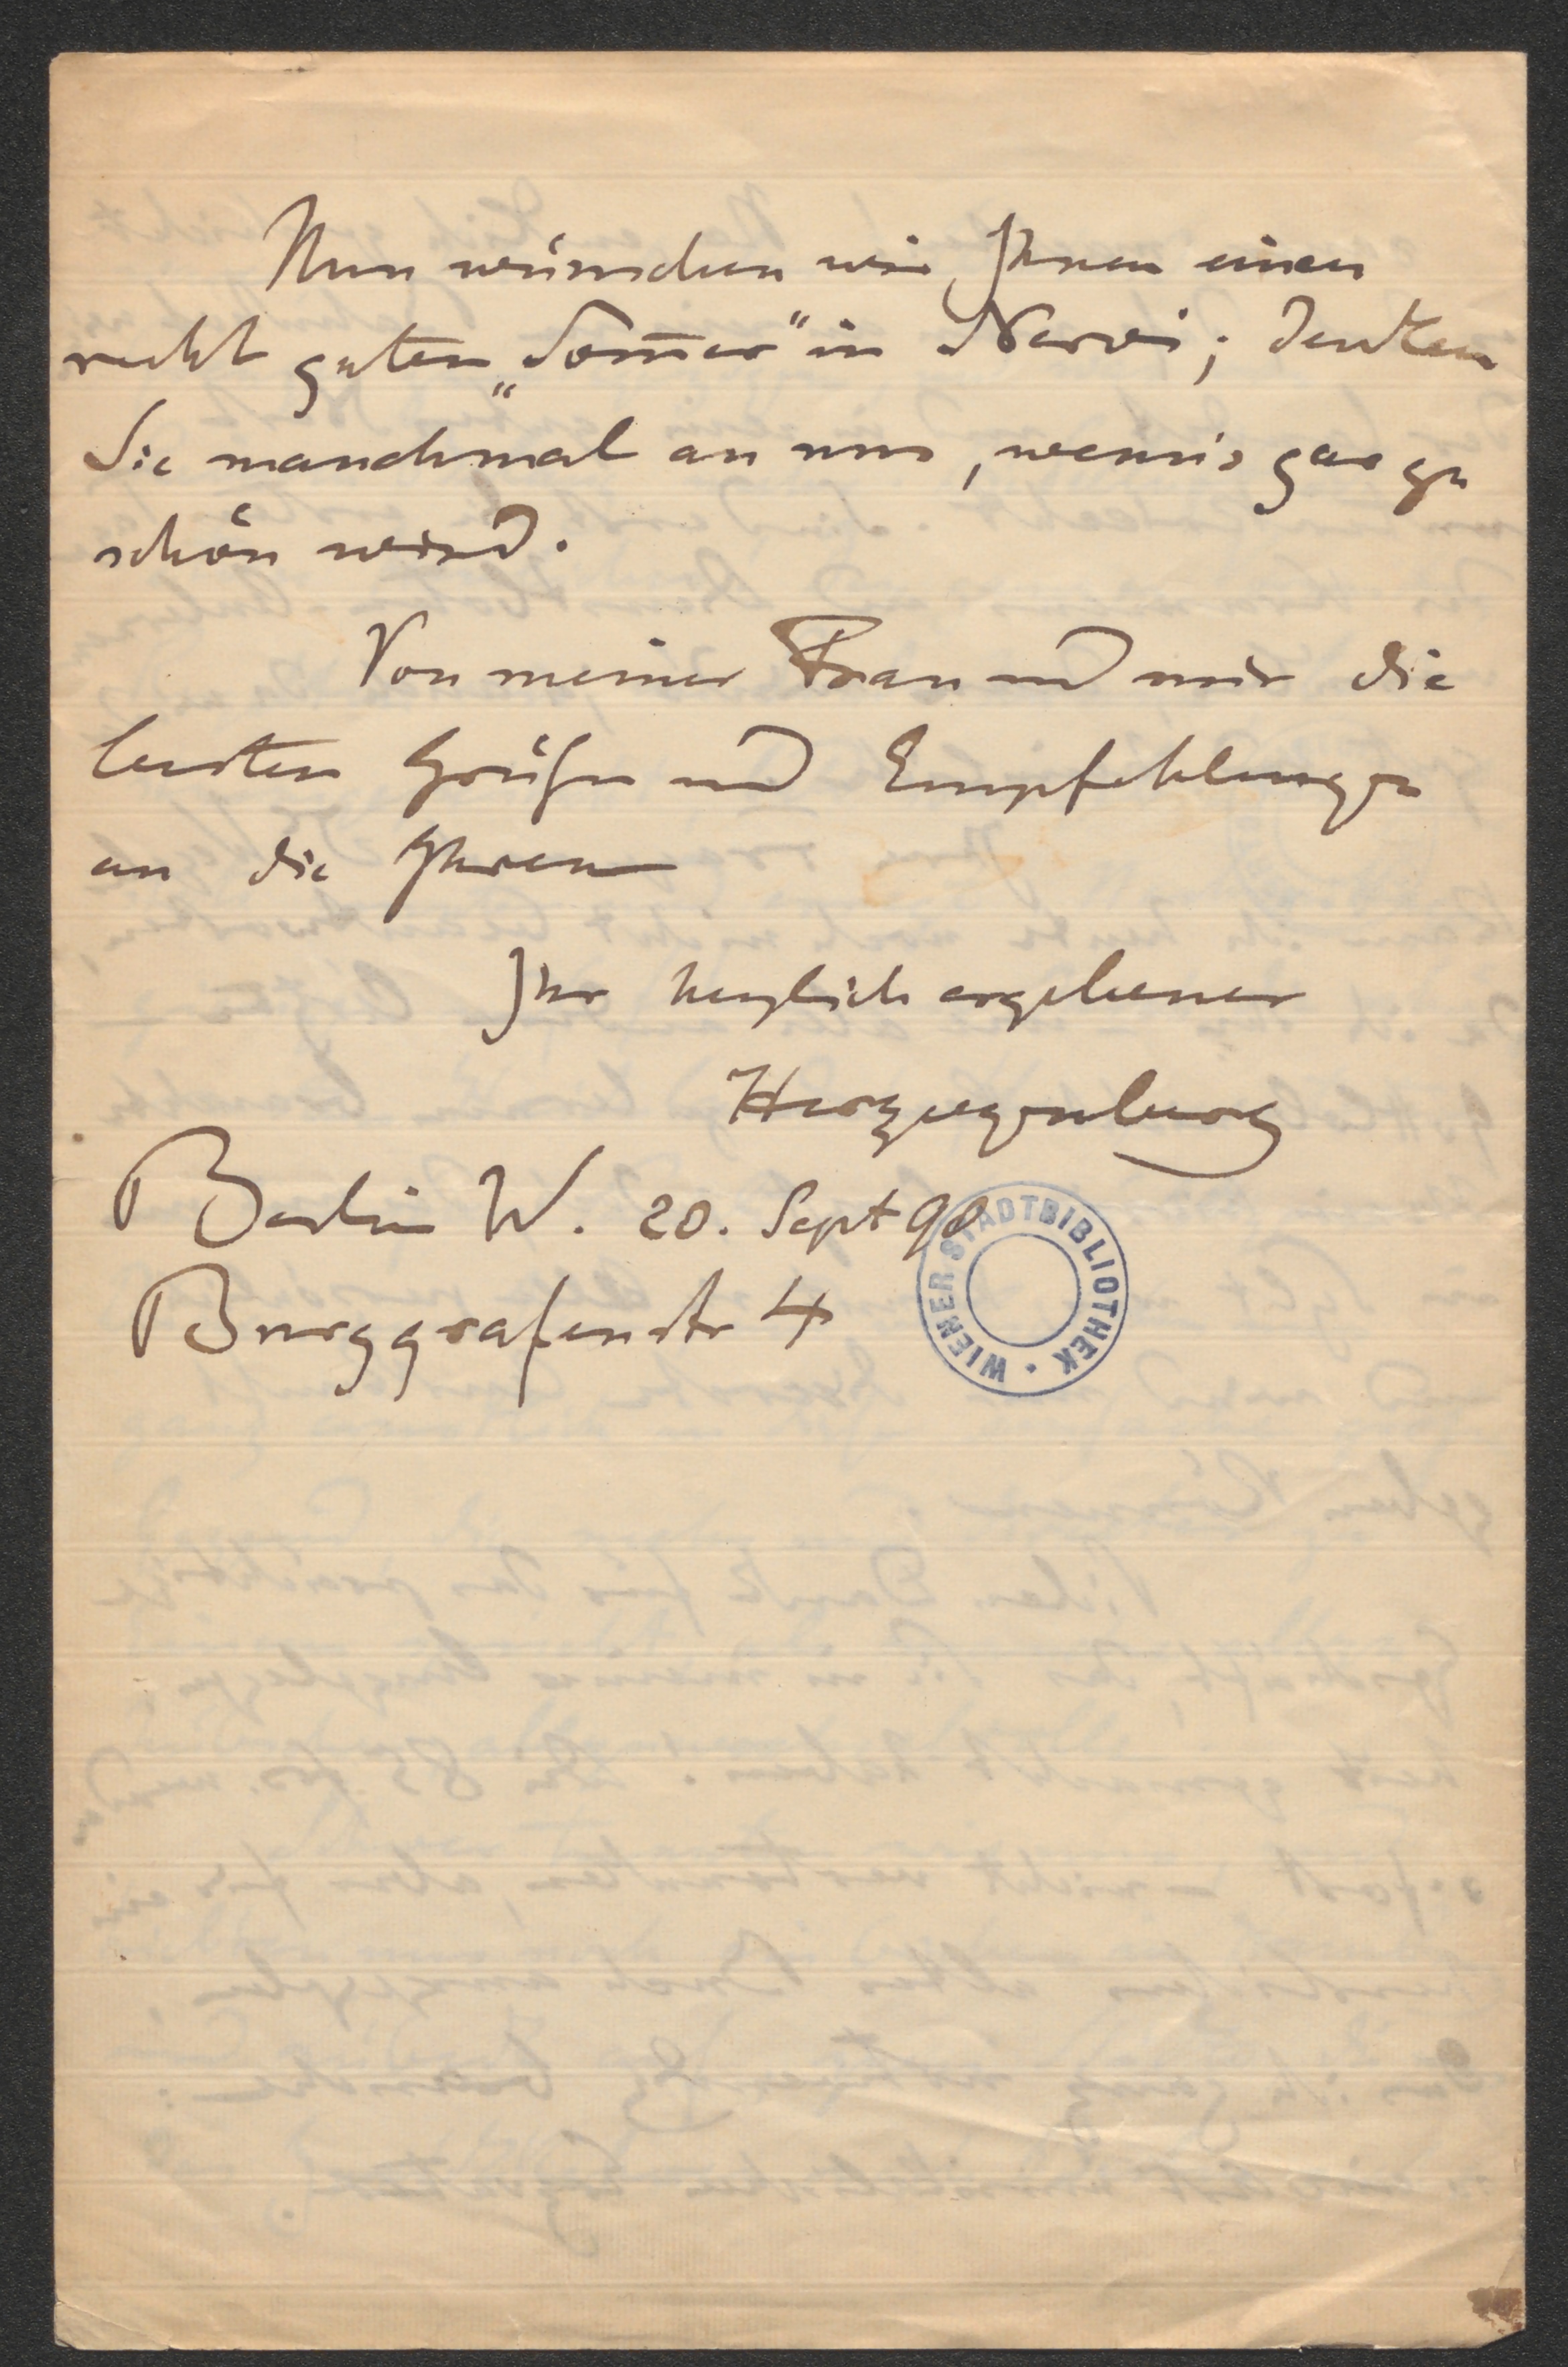 Nun wünschen wir Ihnen einen
recht guten „Som̅er“ in Nervi; denken
Sie manchmal an uns, wenn's gar zu
schön wird.
Von meiner Frau und mir die
besten Grüße und Empfehlungen
an die Ihren
Ihr herzlich ergebener
Herzogenberg
Berlin W. 20. Sept 90
Burggrafenstr 4
WIENER STADTBIBLIOTHEK